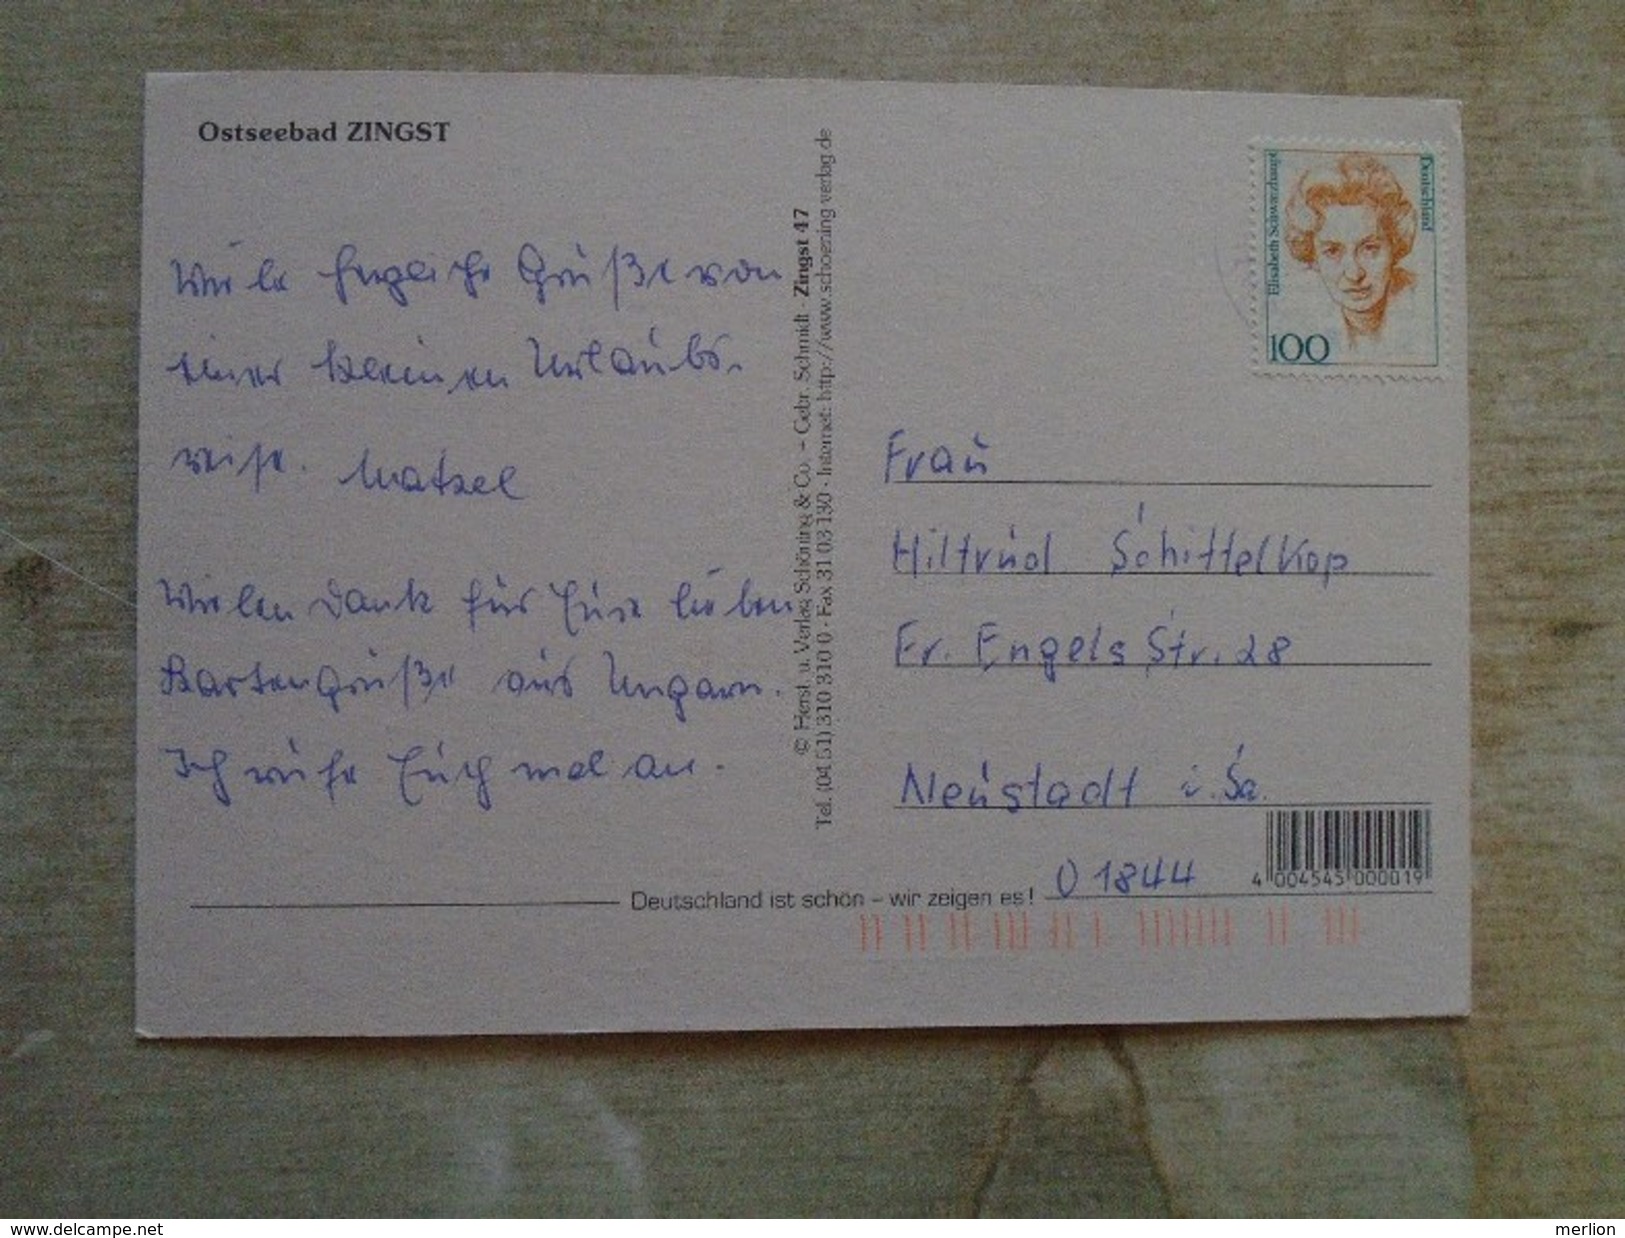 Ostseebad ZINGST
Viele herzliche Grüße von
einer kleinen Urlaubs-
reise. Matzel
Vielen Dank für Eure lieben
Kartengrüße aus Ungarn.
Ich rufe Euch mal an.
© Herst. u. Verlag Schöning & Co. – Gebr. Schmidt · Zingst 47
Tel. (04 51) 310 310 0 · Fax 31 03 130 · Internet: http://www.schoening verlag de
Elisabeth Schwarzhaupt
Deutschland
100
Frau
Hiltrud Schittelkop
Fr. Engels Str. 28
Neustadt i. Sa.
01844
4 004545 000019
Deutschland ist schön – wir zeigen es!
www.delcampe.net
merlion